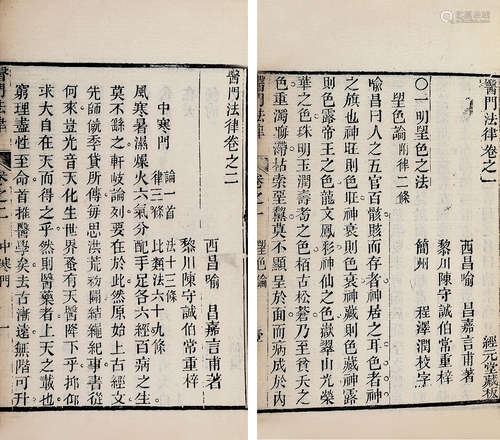 醫門法律卷之一
經元堂藏板
西昌喻　昌嘉言甫著
黎川陳守誠伯常重梓
簡州　程澤潤校字
○一明望色之法
望色論 附律二條
喻昌曰人之五官百骸賅而存者神居之耳色者神
之旗也神旺則色旺神衰則色衰神藏則色藏神露
則色露帝王之色龍文鳳彩神仙之色嶽翠山光榮
華之色珠明玉潤壽耆之色栢古松蒼乃至貧夭之
色重濁晦滯枯索至黧莫不顯呈於面而病成於內
醫門法律
卷之一
望色論
醫門法律卷之二
西昌喻　昌嘉言甫著
黎川陳守誠伯常重梓
中寒門 論一首 法十三條
律三條 比類法六十九條
風寒暑濕燥火六氣分配手足各六經百病之生
莫不繇之軒岐論列要在於此然原始上古經文
先師僦季貸所傳毋思洪荒初闢結繩紀事書從
何來豈光音天化生世界蚤有天醫降下乎抑仰
求大自在天而得之乎然則醫藥者上天之載也
窮理盡性至命首推醫學矣去古　　無階可升
醫門法律
卷之二
中寒門
一